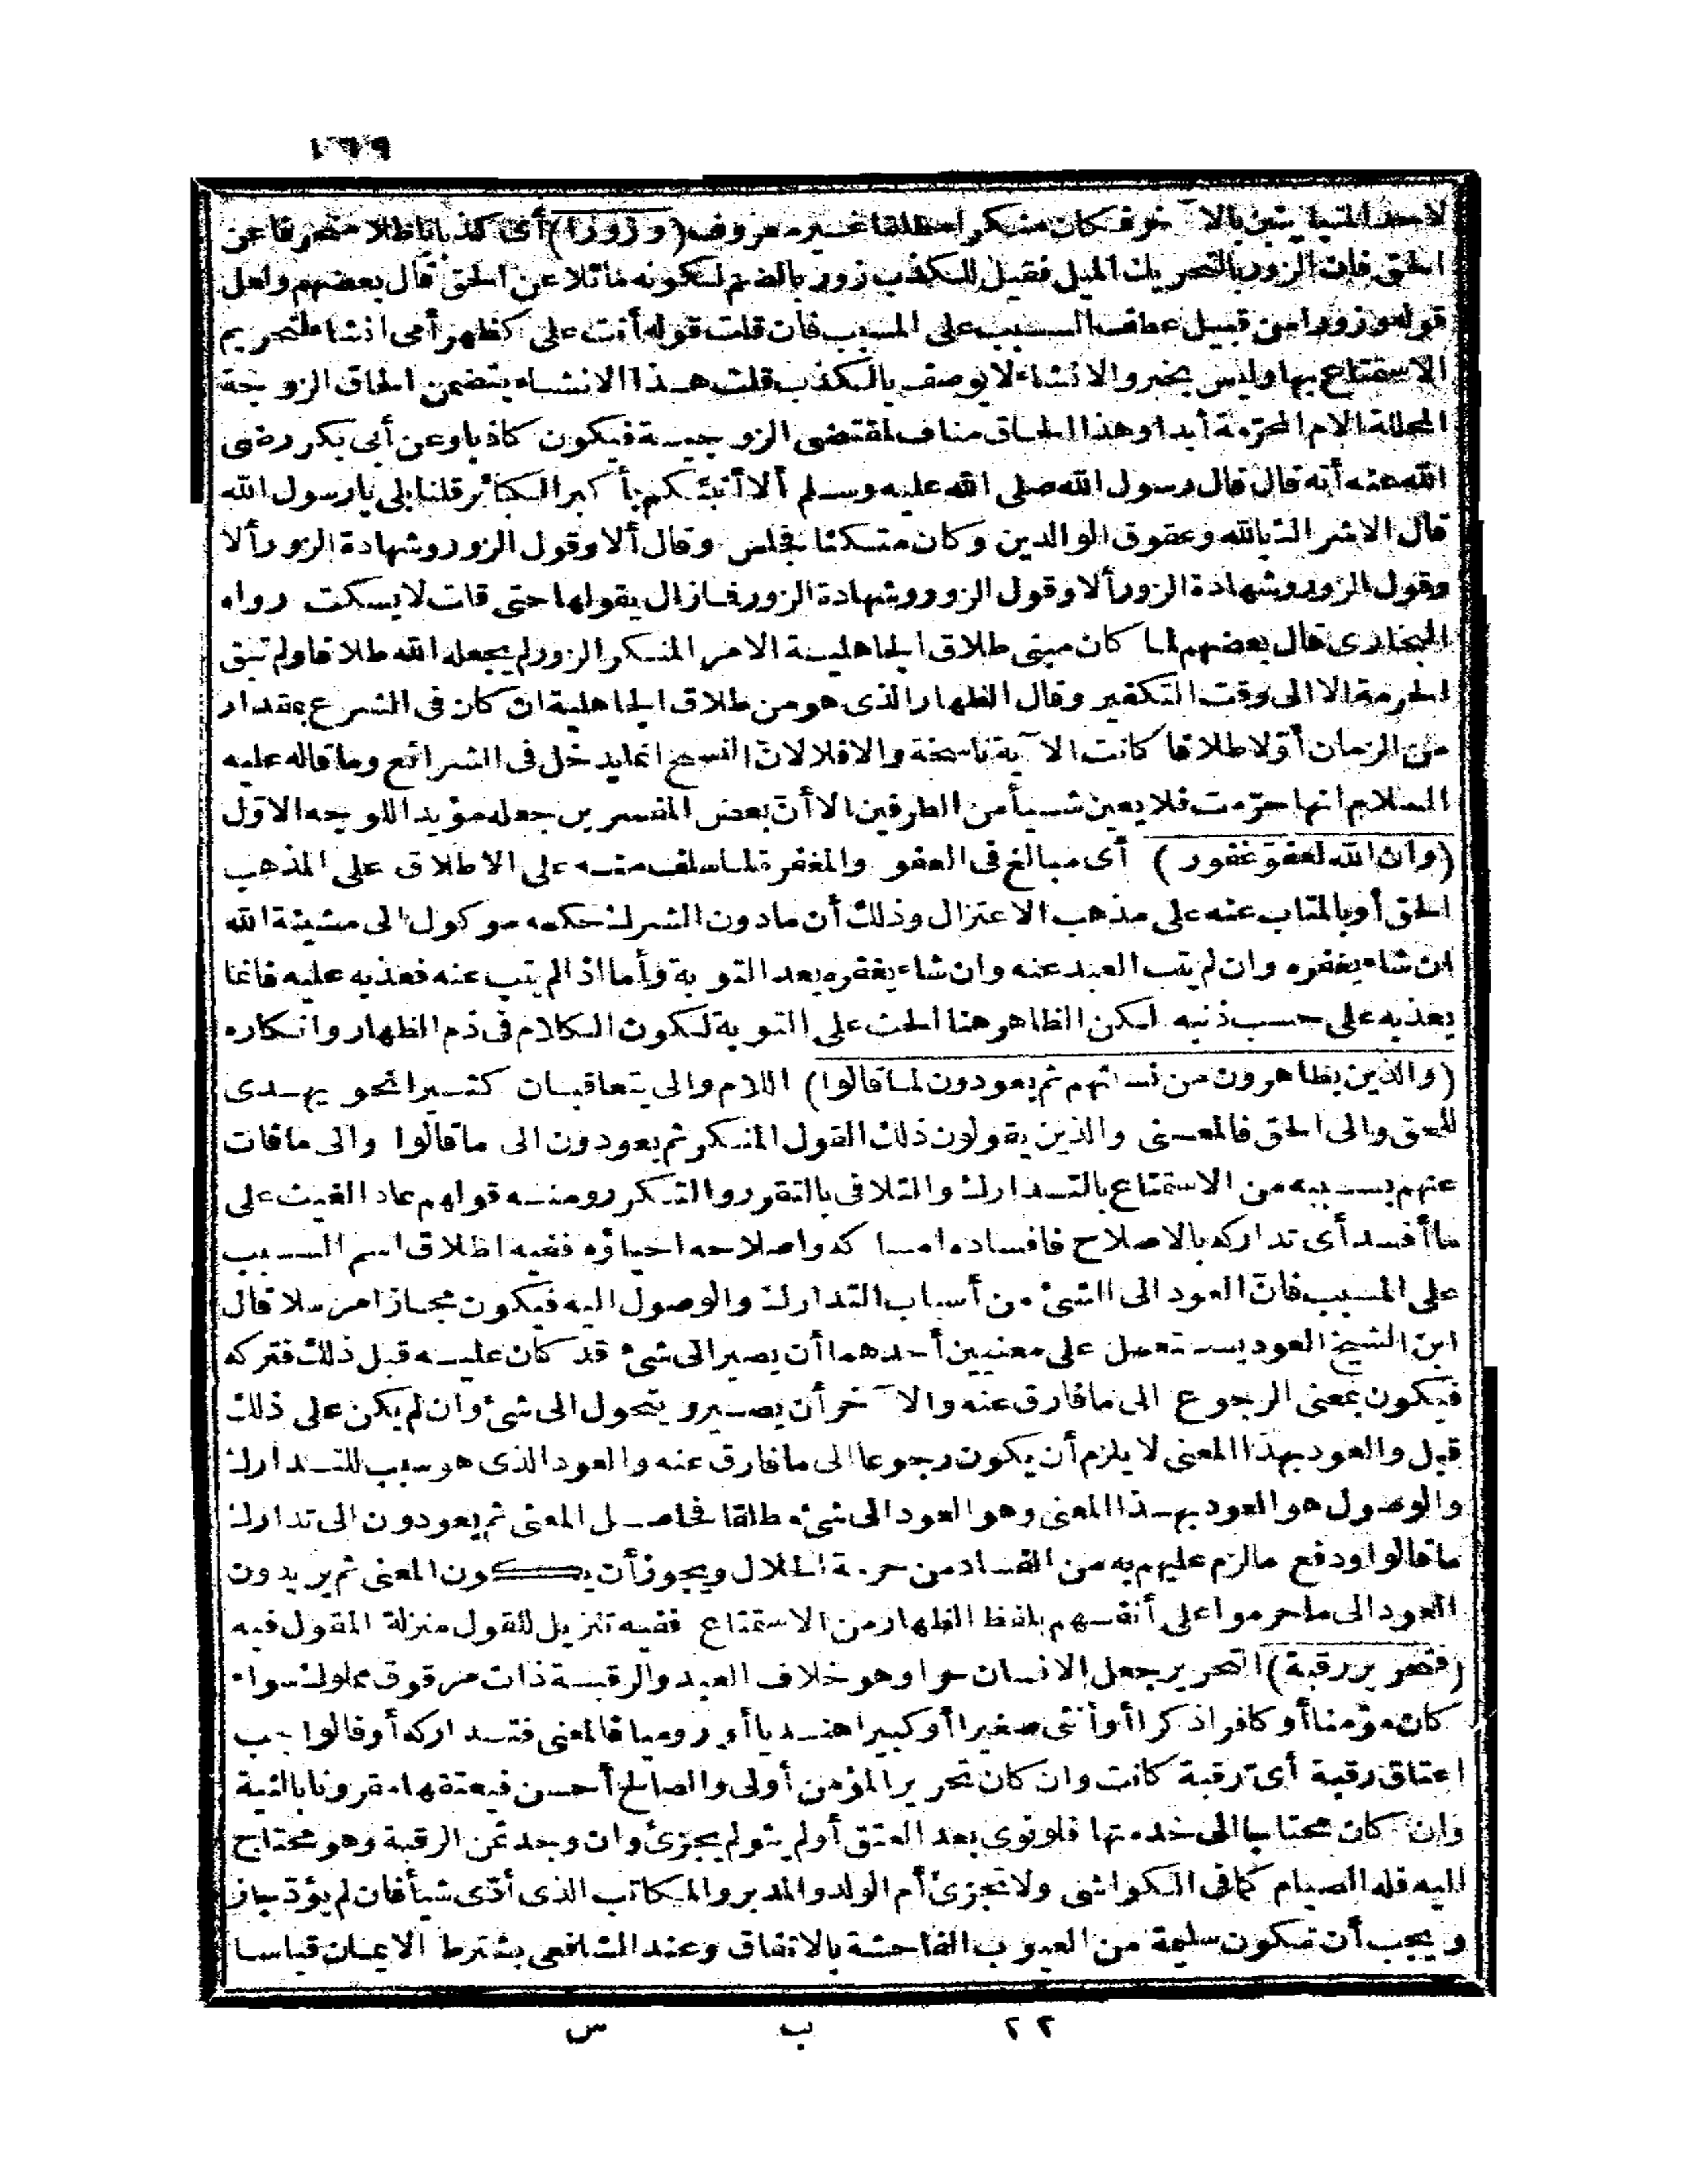 لاحد المتباينين بالآخر فكان منكرا مطلقا غير معروف (وزورا) أى كذبا باطلا منحرفا عن
الحق فان الزور بالتحريك الميل فقيل للكذب زور بالضم لكونه مائلا عن الحق قال بعضهم ولعل
قوله وزورا من قبيل عطف السبب على المسبب فان قلت قوله أنت على كظهر أمى انشاء لتحريم
الاستمتاع بها وليس بخبر والانشاء لا يوصف بالكذب قلت هذا الانشاء يتضمن الحاق الزوجة
المحللة بالام المحرّمة أبدا وهذا الحاق مناف لمقتضى الزوجية فيكون كاذبا وعن أبى بكر رضى
الله عنه أنه قال قال رسول الله صلى الله عليه وسلم ألا أنبئكم بأكبر الكبائر قلنا بلى يا رسول الله
قال الاشراك بالله وعقوق الوالدين وكان متكئا فجلس وقال ألا وقول الزور وشهادة الزور ألا
وقول الزور وشهادة الزور ألا وقول الزور وشهادة الزور فما زال يقولها حتى قلت لا يسكت رواه
البخارى قال بعضهم لما كان مبنى طلاق الجاهلية الامر المنكر الزور لم يجعله الله طلاقا ولم تبق
الحرمة الا الى وقت التكفير وقال الظهار الذى هو من طلاق الجاهلية ان كان فى الشرع بمقدار
من الزمان أوّلا طلاقا كانت الآية ناسخة والا فلا لانّ النسخ انما يدخل فى الشرائع وما قاله عليه
السلام انها حرّمت فلا يعين شيأ من الطرفين الا أنّ بعض المفسرين جعله مؤيدا للوجه الاوّل
(وان الله لعفوّ غفور) أى مبالغ فى العفو والمغفرة لما سلف منه على الاطلاق على المذهب
الحق أو بالمتاب عنه على مذهب الاعتزال وذلك أن ما دون الشرك حكمه موكول الى مشيئة الله
ان شاء يغفره وان لم يتب العبد عنه وان شاء يغفره بعد التوبة وأما اذا لم يتب عنه فعذبه عليه فانما
يعذبه على حسب ذنبه لكن الظاهر هنا الحث على التوبة لكون الكلام فى ذم الظهار وانكاره
(والذين يظاهرون من نسائهم ثم يعودون لما قالوا) اللام والى يتعاقبان كثيرا نحو يهدى
للحق والى الحق فالمعنى والذين يقولون ذلك القول المنكر ثم يعودون الى ما قالوا والى ما فات
عنهم بسببه من الاستمتاع بالتدارك والتلافى بالتقرر والتكرر ومنه قولهم عاد الغيث على
ما أفسد أى تداركه بالاصلاح فافساده امساكه واصلاحه احياؤه ففيه اطلاق اسم السبب
على المسبب فانّ العود الى الشئ من أسباب التدارك والوصول اليه فيكون مجازا مرسلا قال
ابن الشيخ العود يستعمل على معنيين أحدهما أن يصير الى شئ قد كان عليه قبل ذلك فتركه
فيكون بمعنى الرجوع الى ما فارق عنه والآخر أن يصير ويتحول الى شئ وان لم يكن على ذلك
قبل والعود بهذا المعنى لا يلزم أن يكون رجوعا الى ما فارق عنه والعود الذى هو سبب للتدارك
والوصول هو العود بهذا المعنى وهو العود الى شئ مطلقا فحاصل المعنى ثم يعودون الى تدارك
ما قالوا ودفع ما لزم عليهم به من الفساد من حرمة الحلال ويجوز أن يكون المعنى ثم يريدون
العود الى ما حرموا على أنفسهم بلفظ الظهار من الاستمتاع ففيه تنزيل للقول منزلة المقول فيه
(فتحرير رقبة) التحرير جعل الانسان حرا وهو خلاف العبد والرقبة ذات مرقوق مملوك سواء
كان مؤمنا أو كافرا ذكرا أو أنثى صغيرا أو كبيرا هنديا أو روميا فالمعنى فتداركه أو فالواجب
اعتاق رقبة أى ترقبة كانت وان كان تحرير المؤمن أولى والصالح أحسن فيعتقها مقرونا بالنية
وان كان محتاجا الى خدمتها فلو نوى بعد العتق أو لم ينو لم يجزئ وان وجد ثمن الرقبة وهو محتاج
اليه فله الصيام كما فى الكواشى ولا تجزئ أم الولد والمدبر والمكاتب الذى أدّى شيأ فان لم يؤدّ جاز
ويجب أن تكون سليمة من العيوب الفاحشة بالاتفاق وعند الشافعى يشترط الايمان قياسا
٢٢ ب س